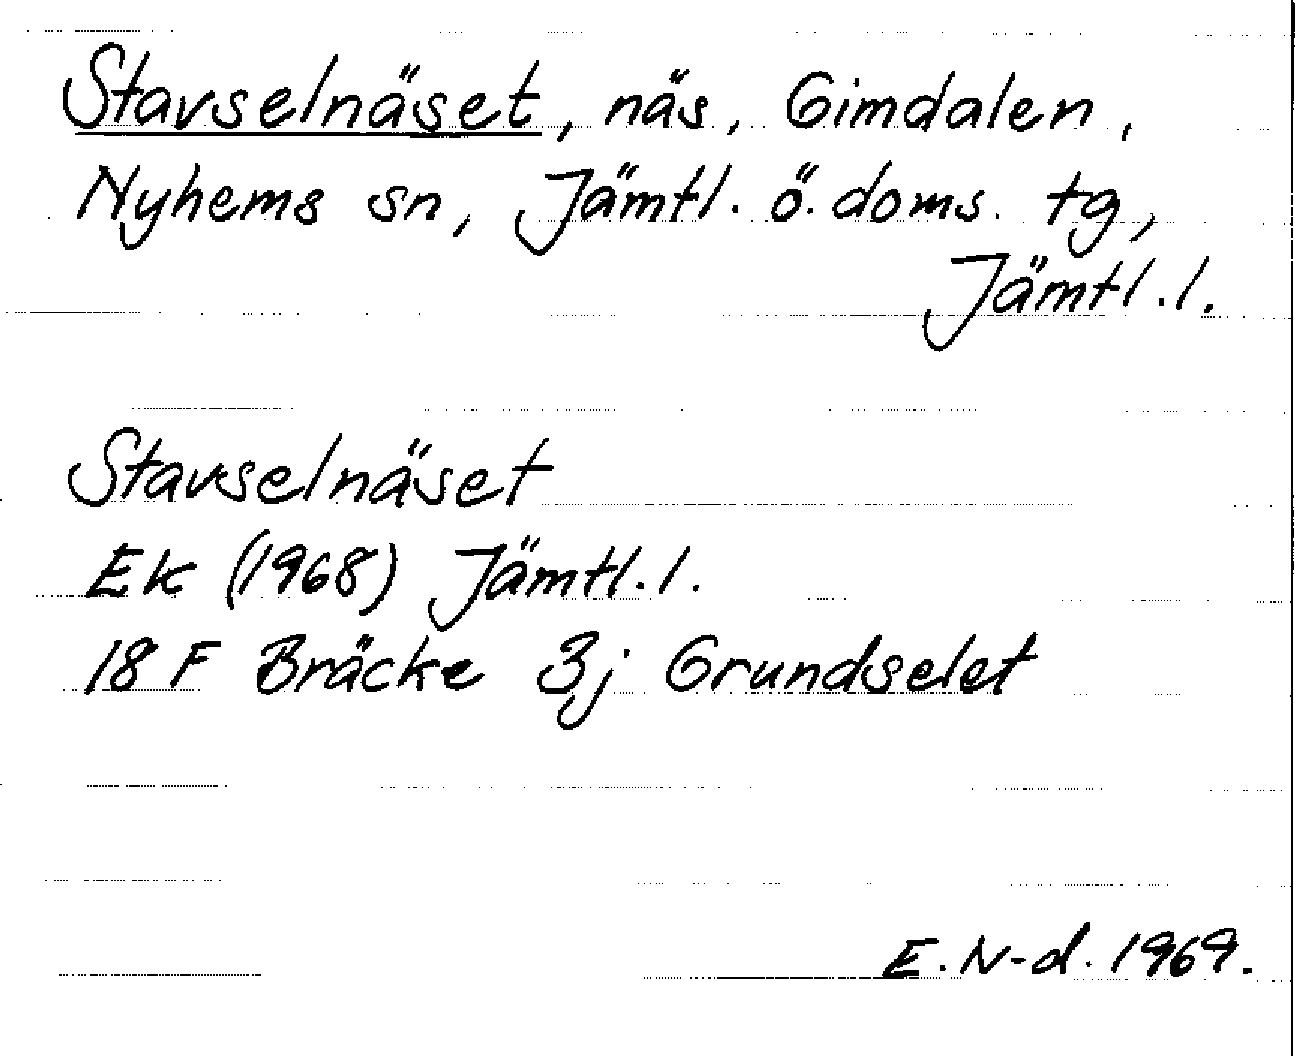 Stavselnäset, näs, Gimdalen,
Nyhems sn, Jämtl. ö. doms. tg,
Jämtl. l.
Stavselnäset
Ek (1968) Jämtl. l.
18 F Bräcke 3j Grundselet
E. N-d. 1969.